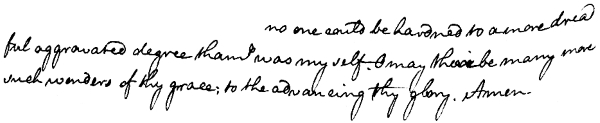 no one could be hardned to a more dread
ful aggravated degree than I was my self. O may there be many more
such wonders of thy grace; to the advancing thy glory. Amen.